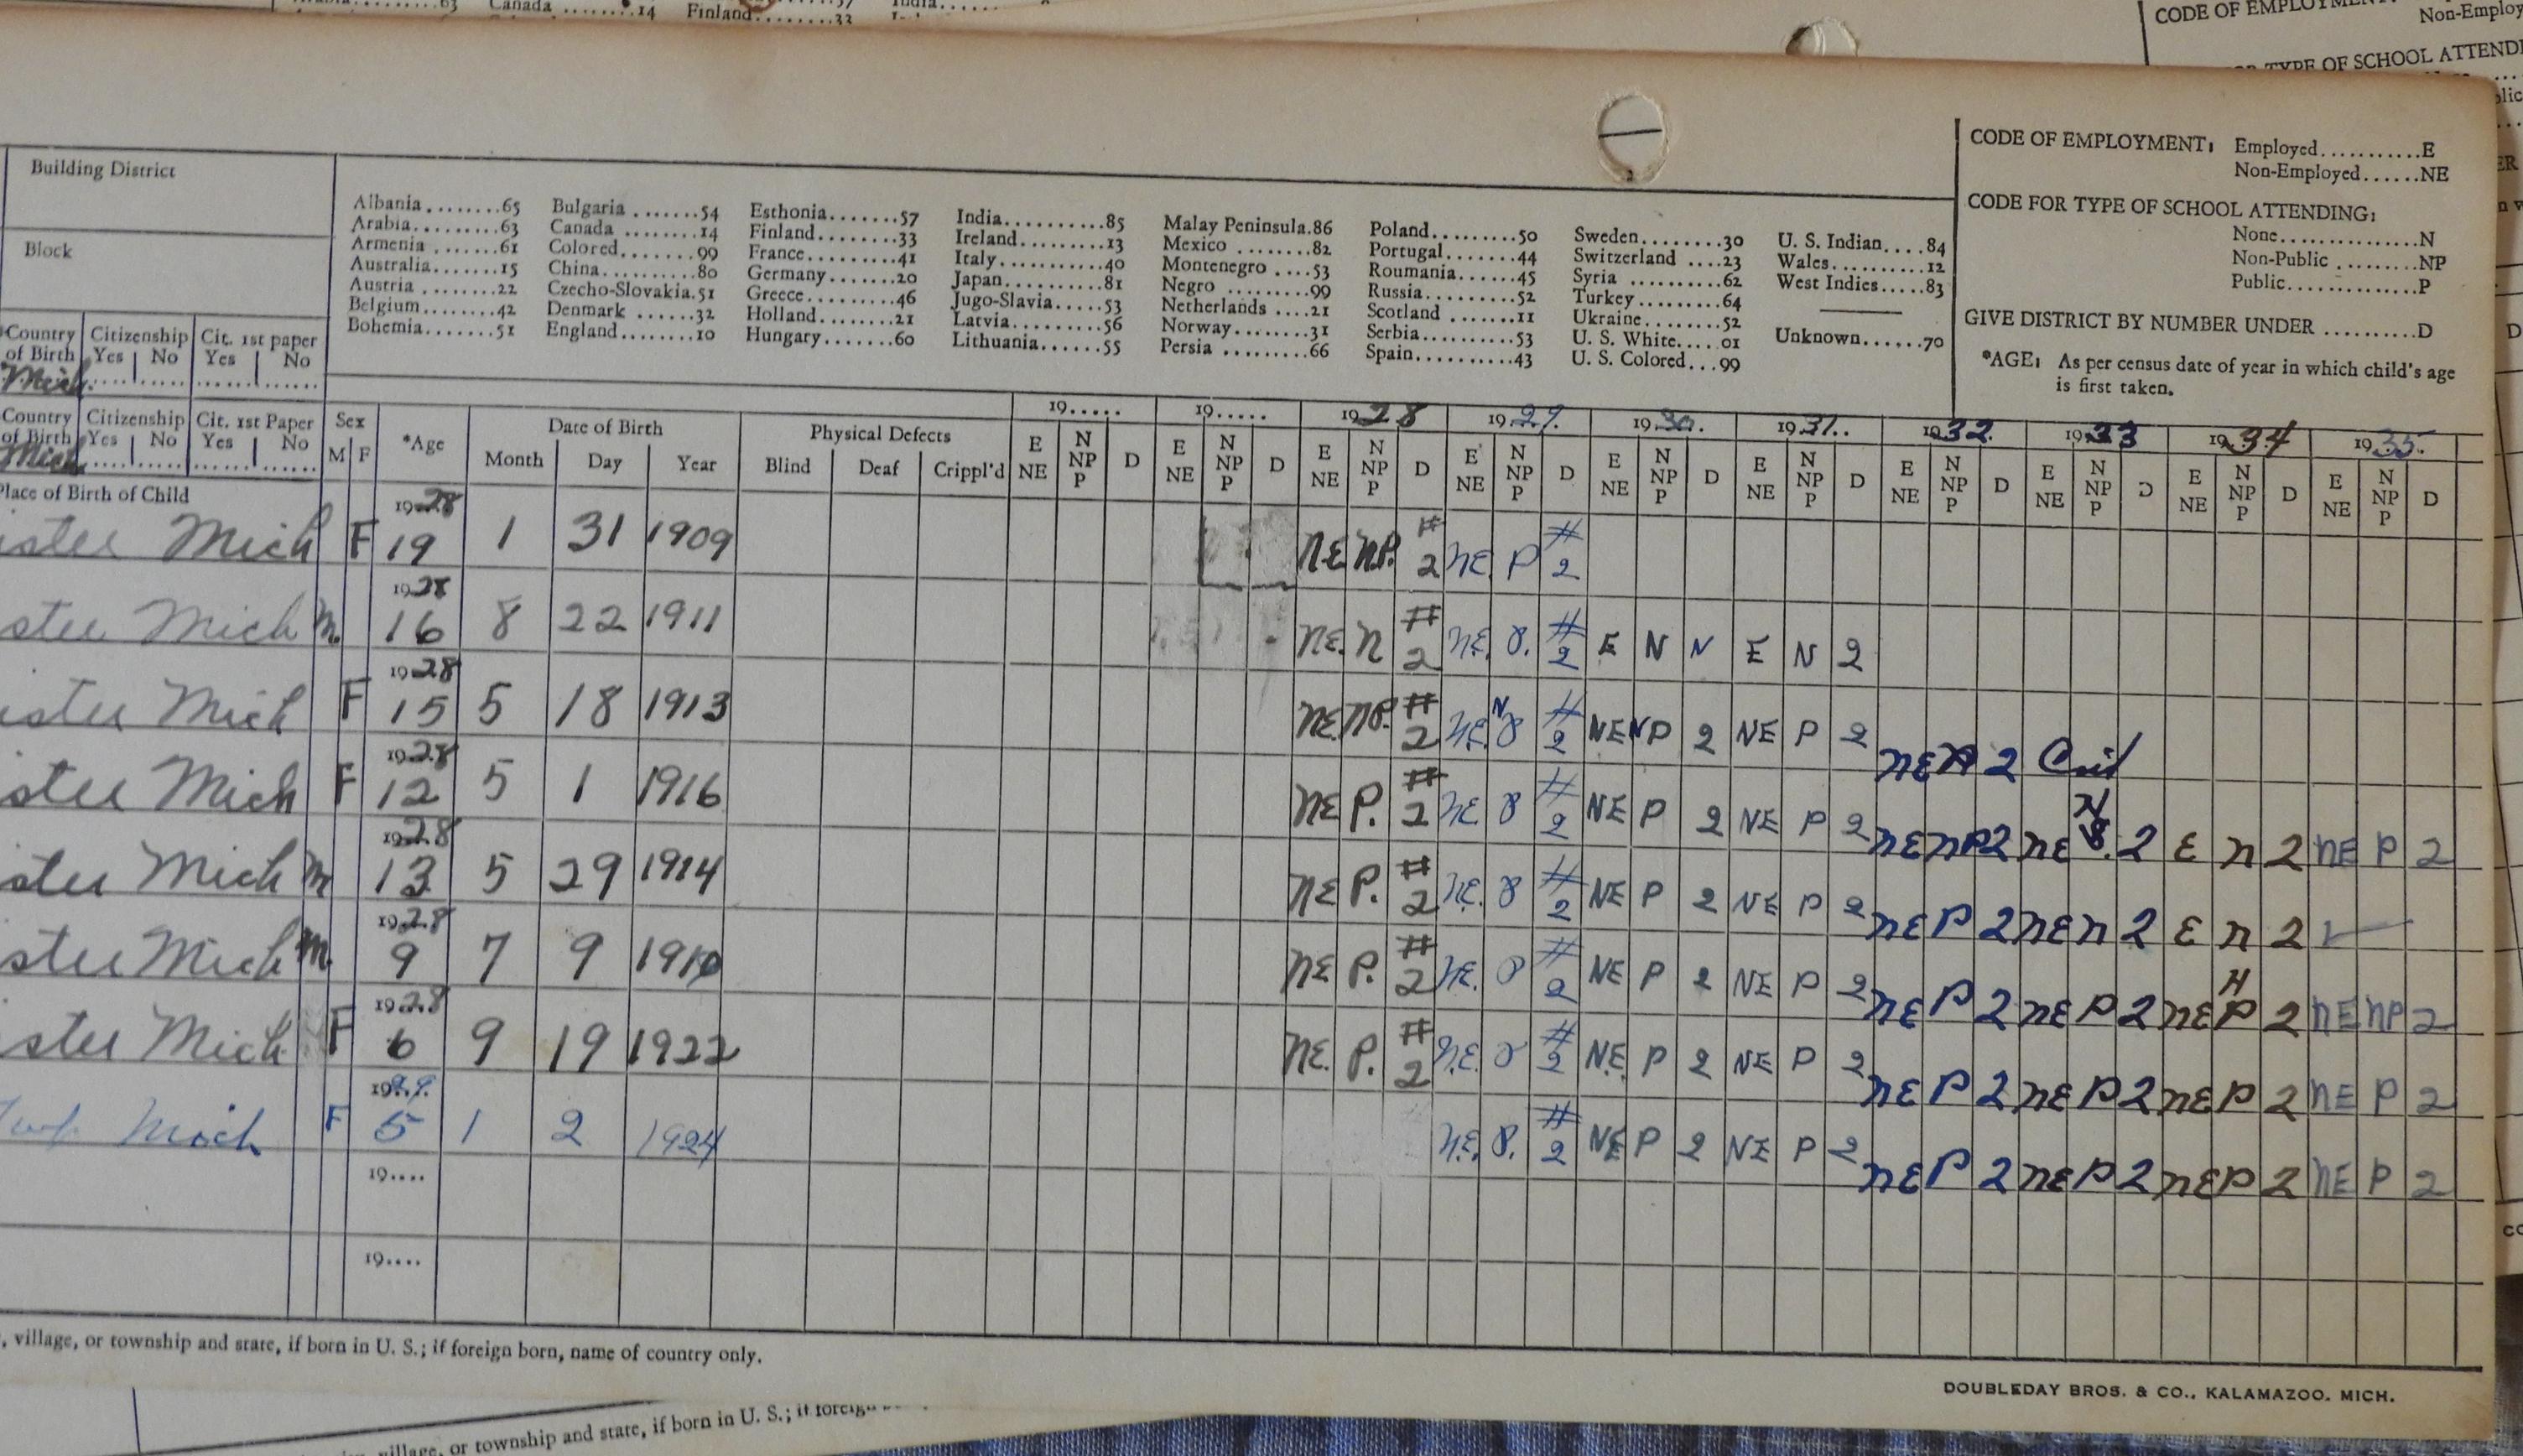 Canada ........14 Finland........33
CODE OF EMPLOYMENT
Non-Employ
TYPE OF SCHOOL ATTENDI
Building District
Block
Albania.........65 Bulgaria .......54 Esthonia.......57 India..........85 Malay Peninsula.86 Poland.........50 Sweden........30 U. S. Indian....84
Arabia..........63 Canada ........14 Finland........33 Ireland.........13 Mexico ........82 Portugal.......44 Switzerland ....23 Wales..........12
Armenia .......61 Colored........99 France.........41 Italy...........40 Montenegro ....53 Roumania......45 Syria ..........62 West Indies.....83
Australia.......15 China..........80 Germany.......20 Japan..........81 Negro .........99 Russia.........52 Turkey.........64
Austria ........22 Czecho-Slovakia.51 Greece.........46 Jugo-Slavia.....53 Netherlands ....21 Scotland .......11 Ukraine........52
Belgium........42 Denmark .......32 Holland........21 Latvia..........56 Norway........31 Serbia..........53 U. S. White....01 Unknown......70
Bohemia........51 England........10 Hungary.......60 Lithuania......55 Persia .........66 Spain..........43 U. S. Colored...99
CODE OF EMPLOYMENT: Employed...........E
Non-Employed......NE
CODE FOR TYPE OF SCHOOL ATTENDING:
None...............N
Non-Public .........NP
Public..............P
GIVE DISTRICT BY NUMBER UNDER ..........D
*AGE: As per census date of year in which child's age
is first taken.
Country of Birth Citizenship Yes No Cit. 1st paper Yes No
Mich.
Country of Birth Citizenship Yes No Cit. 1st Paper Yes No
Mich
Place of Birth of Child
Sex M F *Age Date of Birth Month Day Year Physical Defects Blind Deaf Crippl'd
19..... 19..... 1928 1929. 1930. 1931. 1932. 1933 1934 1935.
E NE N NP P D E NE N NP P D E NE N NP P D E NE N NP P D E NE N NP P D E NE N NP P D E NE N NP P D E NE N NP P D E NE N NP P D E NE N NP P D
istee Mich F 1928 19 1 31 1909 NE NP. #2 NE. P #2
stee Mich M. 1928 16 8 22 1911 NE. N #2 NE. P. #2 E N N E N 2
istee Mich F 1928 15 5 18 1913 NE. NP. #2 NE. NP #2 NE NP 2 NE P 2 NE 2
stee Mich F 1928 12 5 1 1916 NE P. #2 NE. P #2 NE P 2 NE P 2 NE NP 2 NE N 2 E N 2 NE P 2
stee Mich M 1928 13 5 29 1914 NE P. #2 NE. P #2 NE P 2 NE P 2 NE P 2 NE N 2 E N 2 ✓
stee Mich M. 1928 9 7 9 NE P. #2 NE. P #2 NE P 2 NE P 2 NE P 2 NE P 2 NE H P 2 NE NP 2
stee Mich F 1928 6 9 19 1922 NE. P. #2 N.E. P #2 N.E. P 2 NE P 2 NE P 2 NE P 2 NE P 2 NE P 2
Mich F 1929. 5 1 2 1924 N.E. P. #2 NE P 2 NE P 2 NE P 2 NE P 2 NE P 2 NE P 2
19....
19....
, village, or township and state, if born in U. S.; if foreign born, name of country only.
DOUBLEDAY BROS. & CO., KALAMAZOO, MICH.
village, or township and state, if born in U. S.; if foreign